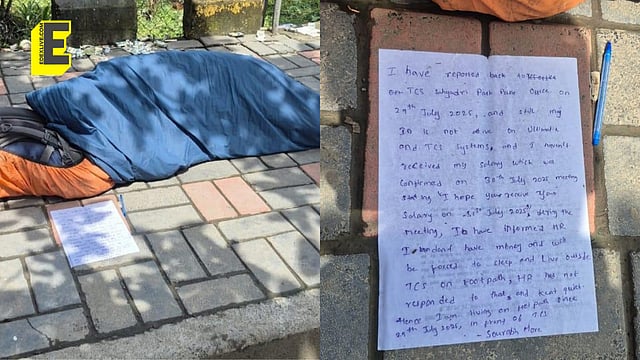 EDEXLIVE.COM
E
I have reported back to office
TCS Sahyadri Park Pune Office on
29th July 2025, and still my
ID is not active on Ultimatix
and TCS systems, and I haven't
received my salary which was
confirmed on 30th July 2025 meeting
saying "I hope your receive your
Salary on 31st July 2025", during the
meeting, I have informed HR
I don't have money and will
be forced to sleep and live outside
TCS on footpath, HR has not
responded to that and kept quiet.
Hence I am living on footpath since
29th July 2025, in front of TCS
- Saurabh More